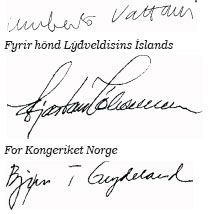 Umberto Vattani
Fyrir hönd Lýðveldisins Íslands
Kjartan Jóhannsson
For Kongeriket Norge
Bjørn T Grydeland